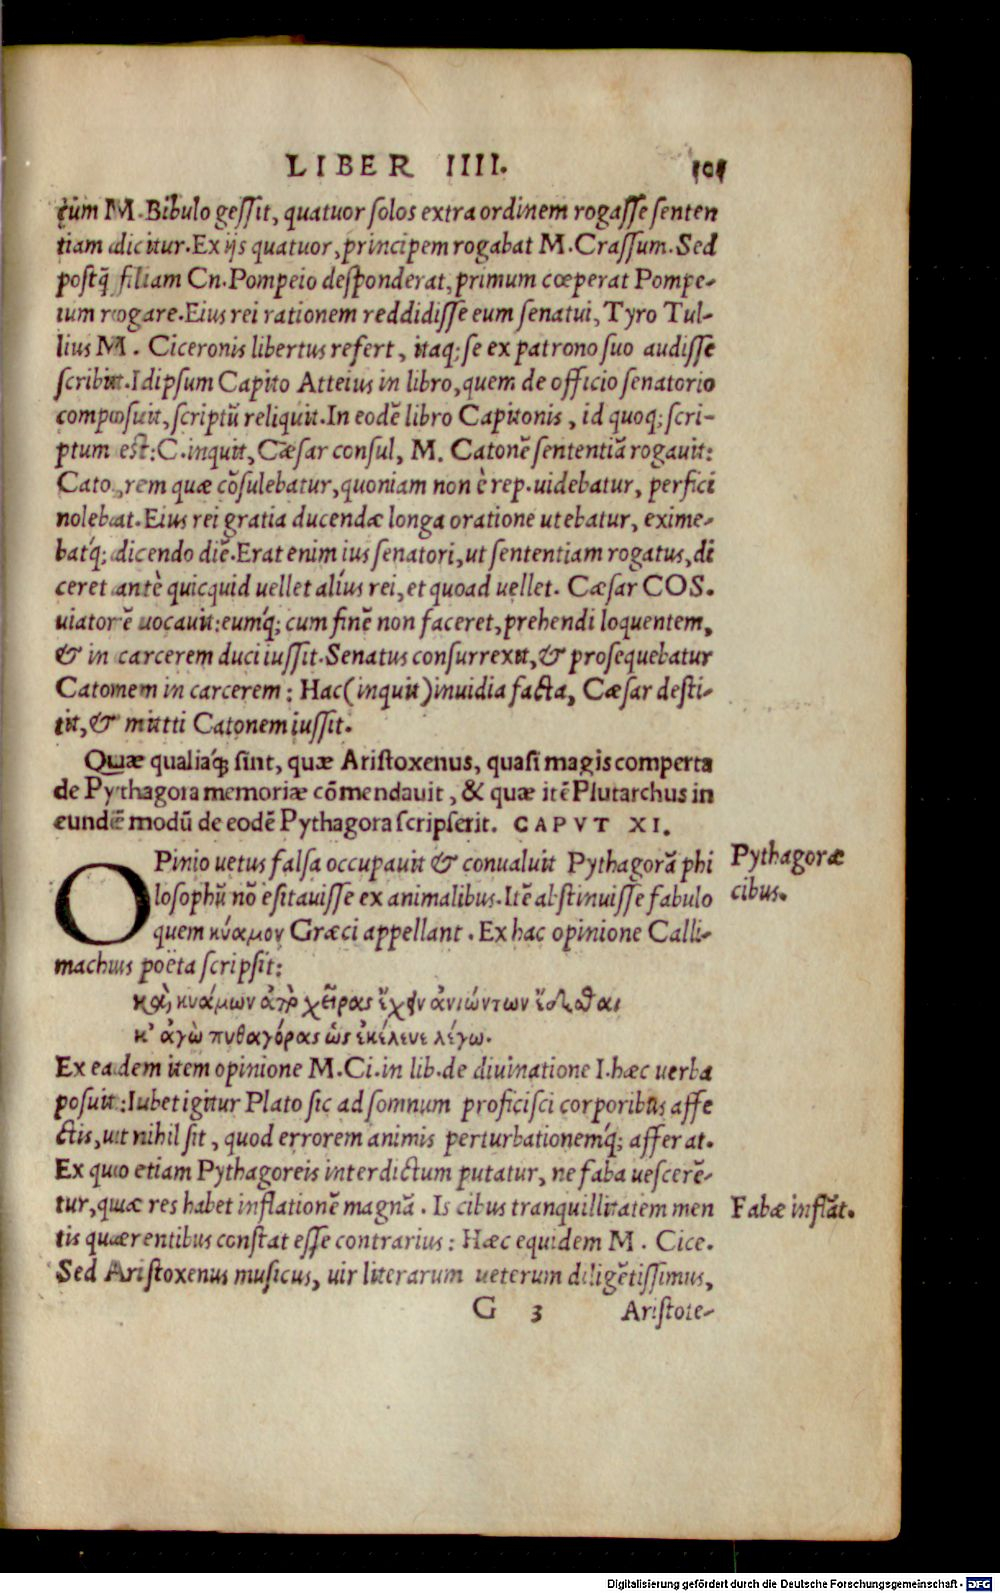 LIBER IIII. 101
cũm M. Bibulo gessit, quatuor solos extra ordinem rogasse senten
tiam dicitur. Ex ijs quatuor, principem rogabat M. Crassum. Sed
postq̃ filiam Cn. Pompeio desponderat, primum cœperat Pompe-
ium rogare. Eius rei rationem reddidisse eum senatui, Tyro Tul-
lius M. Ciceronis libertus refert, itaq; se ex patrono suo audisse
scribit. Id ipsum Capito Atteius in libro, quem de officio senatorio
composuit, scriptũ reliquit. In eodẽ libro Capitonis, id quoq; scri-
ptum est: C. inquit, Cæsar consul, M. Catonẽ sententiã rogauit:
Cato, rem quæ cõsulebatur, quoniam non è rep. uidebatur, perfici
nolebat. Eius rei gratia ducendæ longa oratione utebatur, exime-
batq́; dicendo diẽ. Erat enim ius senatori, ut sententiam rogatus, di
ceret antè quicquid uellet alíus rei, et quoad uellet. Cæsar COS.
uiatorẽ uocauit: eumq́; cum finẽ non faceret, prehendi loquentem,
& in carcerem duci iussit. Senatus consurrexit, & prosequebatur
Catonem in carcerem: Hac (inquit) inuidia facta, Cæsar desti-
tit, & mitti Catonem iussit.
Quæ qualiaq́; sint, quæ Aristoxenus, quasi magis comperta
de Pythagora memoriæ cõmendauit, & quæ itẽ Plutarchus in
eundẽ modũ de eodẽ Pythagora scripserit. CAPVT XI.
OPinio uetus falsa occupauit & conualuit Pythagorã phi
losophũ nõ esitauisse ex animalibus. Itẽ abstinuisse fabulo
quem κύαμον Græci appellant. Ex hac opinione Calli-
machus poëta scripsit:
Pythagoræ
cibus.
καὶ κυάμων ἀπὸ χεῖρας ἔχειν ἀνιώντων ἔδεσθαι
κ' ἀγὼ πυθαγόρας ὡς ἐκέλευε λέγω.
Ex eadem item opinione M. Ci. in lib. de diuinatione I. hæc uerba
posuit: Iubet igitur Plato sic ad somnum proficisci corporibus affe
ctis, ut nihil sit, quod errorem animis perturbationemq́; afferat.
Ex quo etiam Pythagoreis interdictum putatur, ne faba uescerẽ-
tur, quæ res habet inflationẽ magnã. Is cibus tranquillitatem men
tis quærentibus constat esse contrarius: Hæc equidem M. Cice.
Sed Aristoxenus musicus, uir literarum ueterum diligẽtissimus,
Fabæ inflãt.
G 3 Aristote-
Digitalisierung gefördert durch die Deutsche Forschungsgemeinschaft - DFG